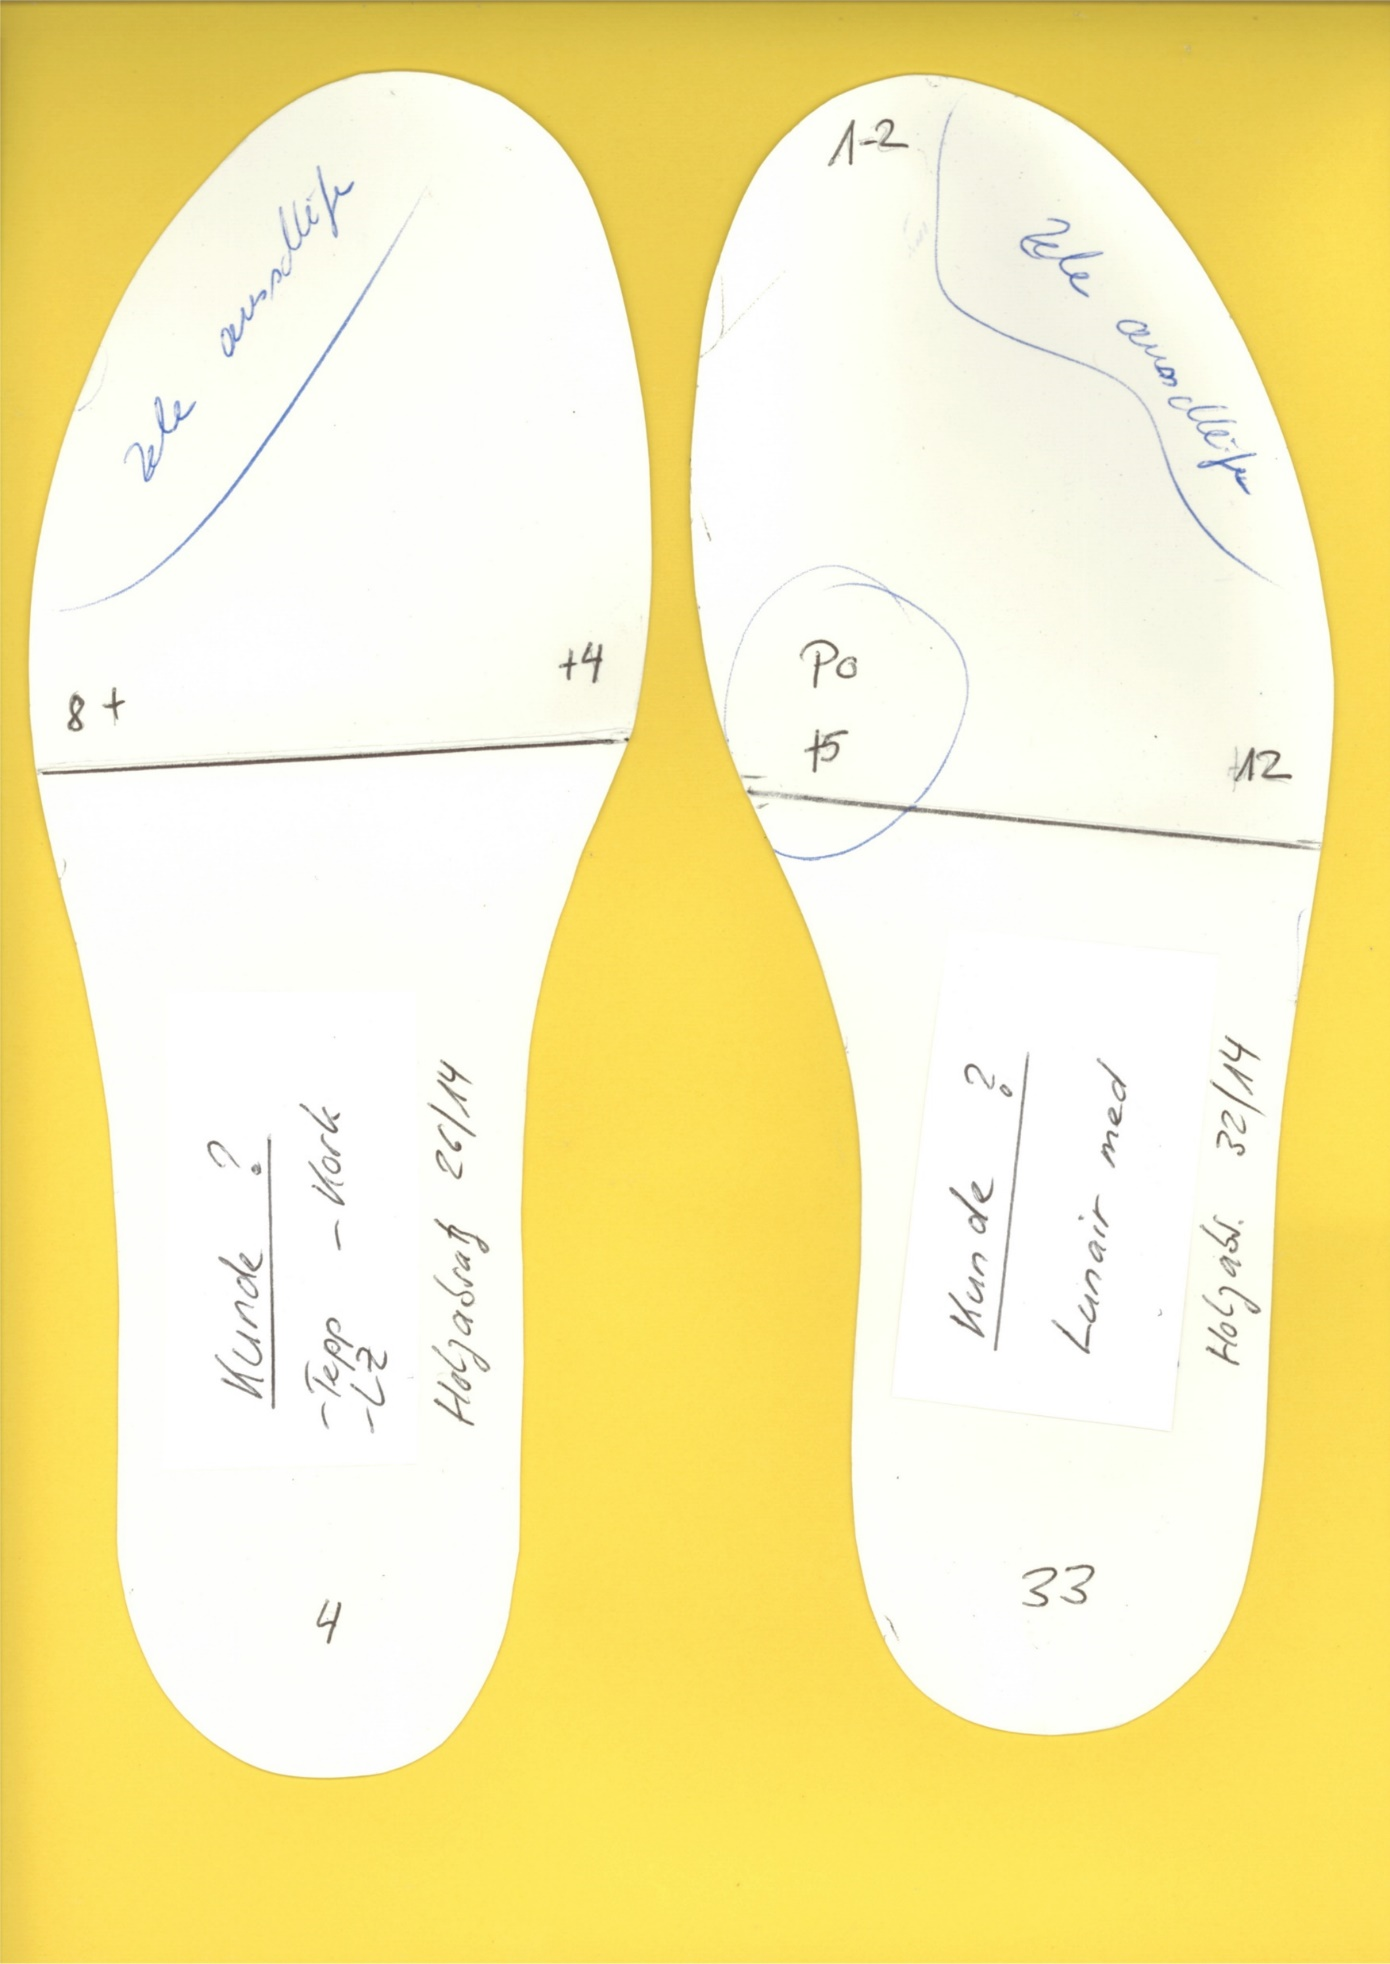 Zehe ausschleifen
8 +
+4
Kunde ?
- Tepp - Kork
- LZ
Holzabsatz 26/14
4
1-2
Zehe ausschleifen
Po
+5
+12
Kunde ?
Lunair med
Holzabs. 32/14
33